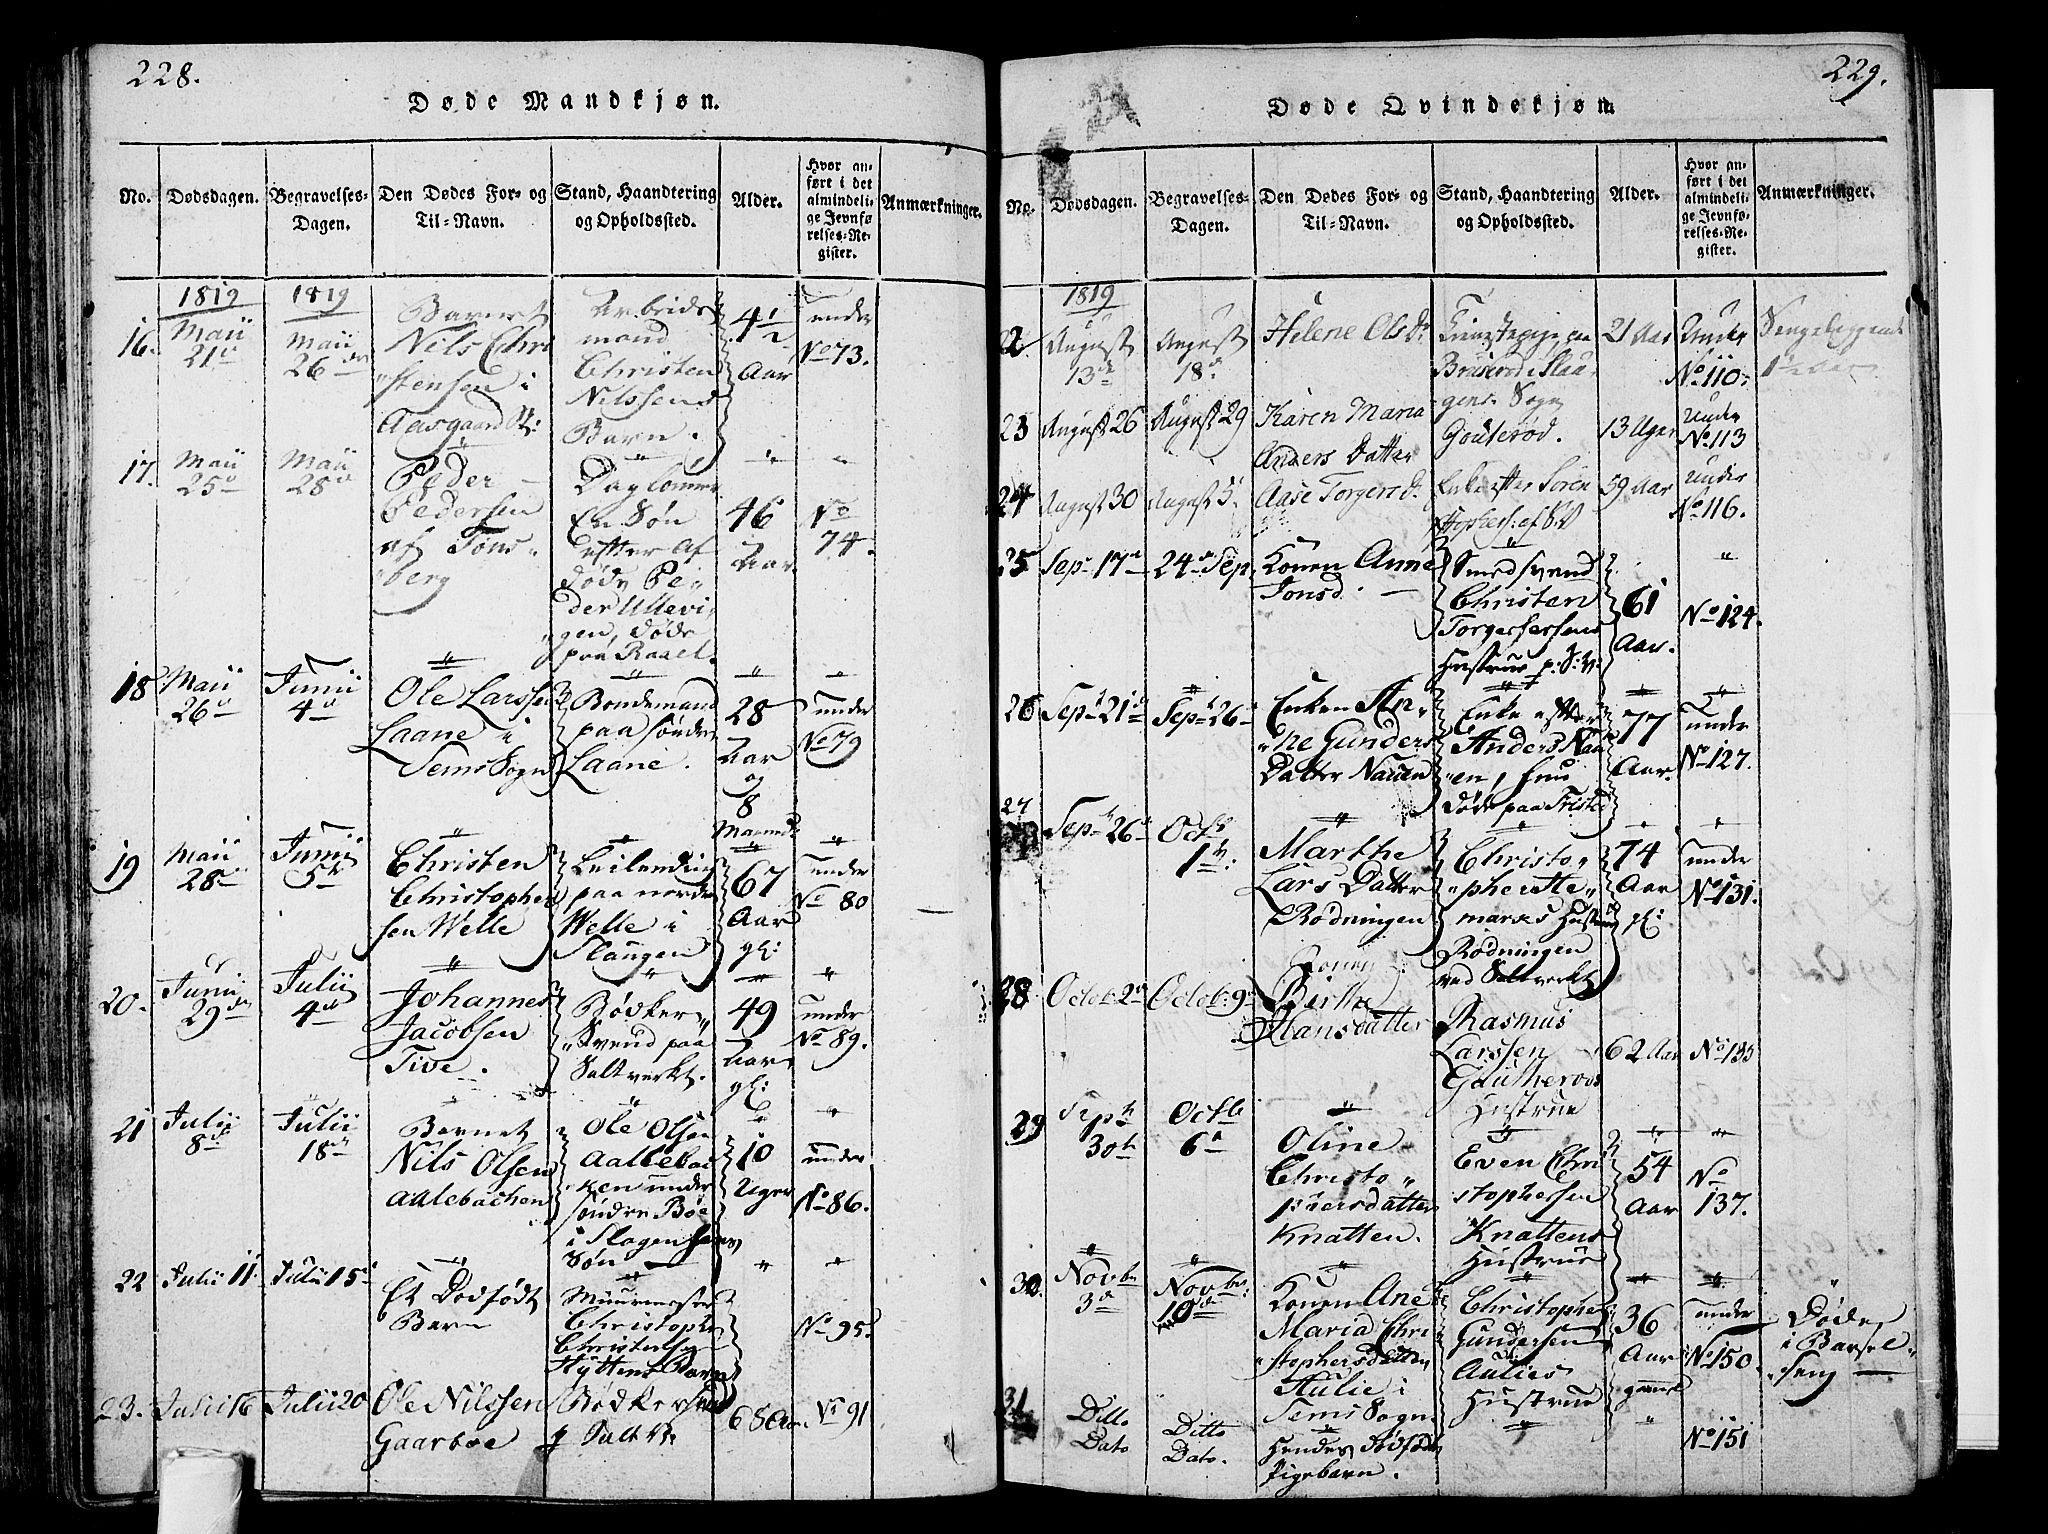 228.
Døde Mandkjøn.
No.
Dødsdagen.
Begravelses-
Dagen.
Den Dødes For- og
Til-Navn.
Stand, Haandtering
og Opholdssted.
Alder.
Hvor an-
ført i det
almindeli-
ge Jevnfø-
relses-Re-
gister.
Anmærkninger.
1819
1819
16.
Maii
21d
Maii
26de
Barnet
Nils Chri
"stensen i
Aasgaard St:
Arbeids
mand
Christen
Nilssens
Barn.
4 1/2
Aar
under
No 73.
17.
Maii
25d
Maii
28d
Peder
Pedersen
af Tøns
berg
En Søn
efter af
døde Pe
der Ullevi
"gen, døde
paa Raael.
46
Aar
No
74.
18
Maii
26d
Junii
4d
Ole Larssen
Laane i
Sems Sogn
Bondemand
paa søndre
Laane.
28
Aar
og
8
Maaned
under
No 79
19
Maii
28d
Junii
5te
Christen
Christopher
sen Welle
Leilending
paa nordre
Welle i
Slaugen
67
Aar
gl:
under
No 80
20.
Junii
29de
Julii
4d
Johannes
Jacobsen
Tive.
Bødker
"Svend paa
Saltverket.
49
Aar
gl:
under
No 89.
21
Julii
8d
Julii
18d
Barnet
Nils Olsen
Aalebachen
Ole Olsen
Aallebac
ken under
søndre Bøe
i Slagen hans
Søn
10
Uger
under
No 86.
22
Julii 11
Julii 15d
Et Dødfødt
Barn
Muurmester
Christopher
Hyttens Barn
No 95.
23.
Julii 16
Julii 20
Ole Nilssen
Gaarboe
Bødkersvend
p Salt V.
68 Aar.
No 91
229.
Døde Qvindekjøn.
No.
Dødsdagen.
Begravelses-
Dagen.
Den Dødes For- og
Til-Navn.
Stand, Haandtering
og Opholdssted.
Alder.
Hvor an-
ført i det
almindeli-
ge Jevnfø-
relses-Re-
gister.
Anmærkninger.
1819
22
August
13de
August
18d
Helene Ols Dr
Tienestepige paa
Bruserød i Slau
gens Sogn
21 Aar
Under
No 110.
Sengeliggende
1 1/2 Aar
23
August 26
August 29
Karen Maria
Anders Datter
Gouterød.
13 Uger
Under
No 113
24
August 30
August 5
Aase Torgersd.
Enke efter Sören
59 Aar
Under
No 116.
25
Sepr 17d
24d Sep.
Konen Anne
Jonsd.
Smedsvend
Christen
Torgersersens
Hustrue p: S: V:
61
Aar.
No 124.
26
Sept 21d
Sept 26d
Enken An
"ne Gunders
Datter Nauen
Enke efter
Anders Nau
"en, hun
døde paa
77
Aar.
under
No 127.
27
Sept 26d
Octb
1ste
Marthe
Lars Datter
Rødningen
Christo
"pher
Hustrue
Rødningen
ved Saltverket
74
Aar
gl:
under
No 131.
28
Octob: 2d
Octob: 9d
Konen
Birthe
Hansdatter
Rasmus
Larssen
Gautherøds
Hustrue
62 Aar
No 135
29
Septr
30te
Octb
6d
Oline
Christo
phersdatter
Knatten.
Even Chri
stophersen
Knattens
Hustrue
54
Aar
No
137.
30.
Novbr
3d
Novbr:
10d
Konen Ane
Maria Chri
"stophersdatter
Aulie i
Sems Sogn.
Christopher
Gundersen
Aulies
Hustrue
36
Aar
gammel
under
No 150.
Døde
i Barsel
seng
31
Ditto
Dato
Ditto
Dato.
Hendes Dødfødte
Pigebarn.
No 151